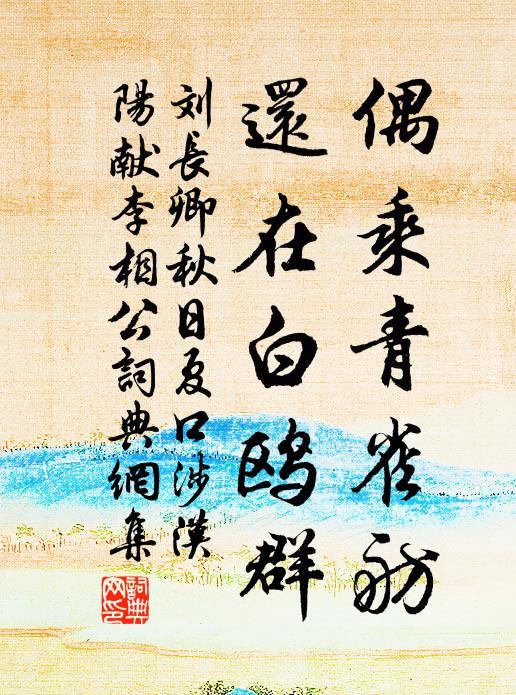 偶乘青雀舫
還在白鸥群
刘長卿秋日夏口涉漢
陽献李相公詞典網集
詞典網印